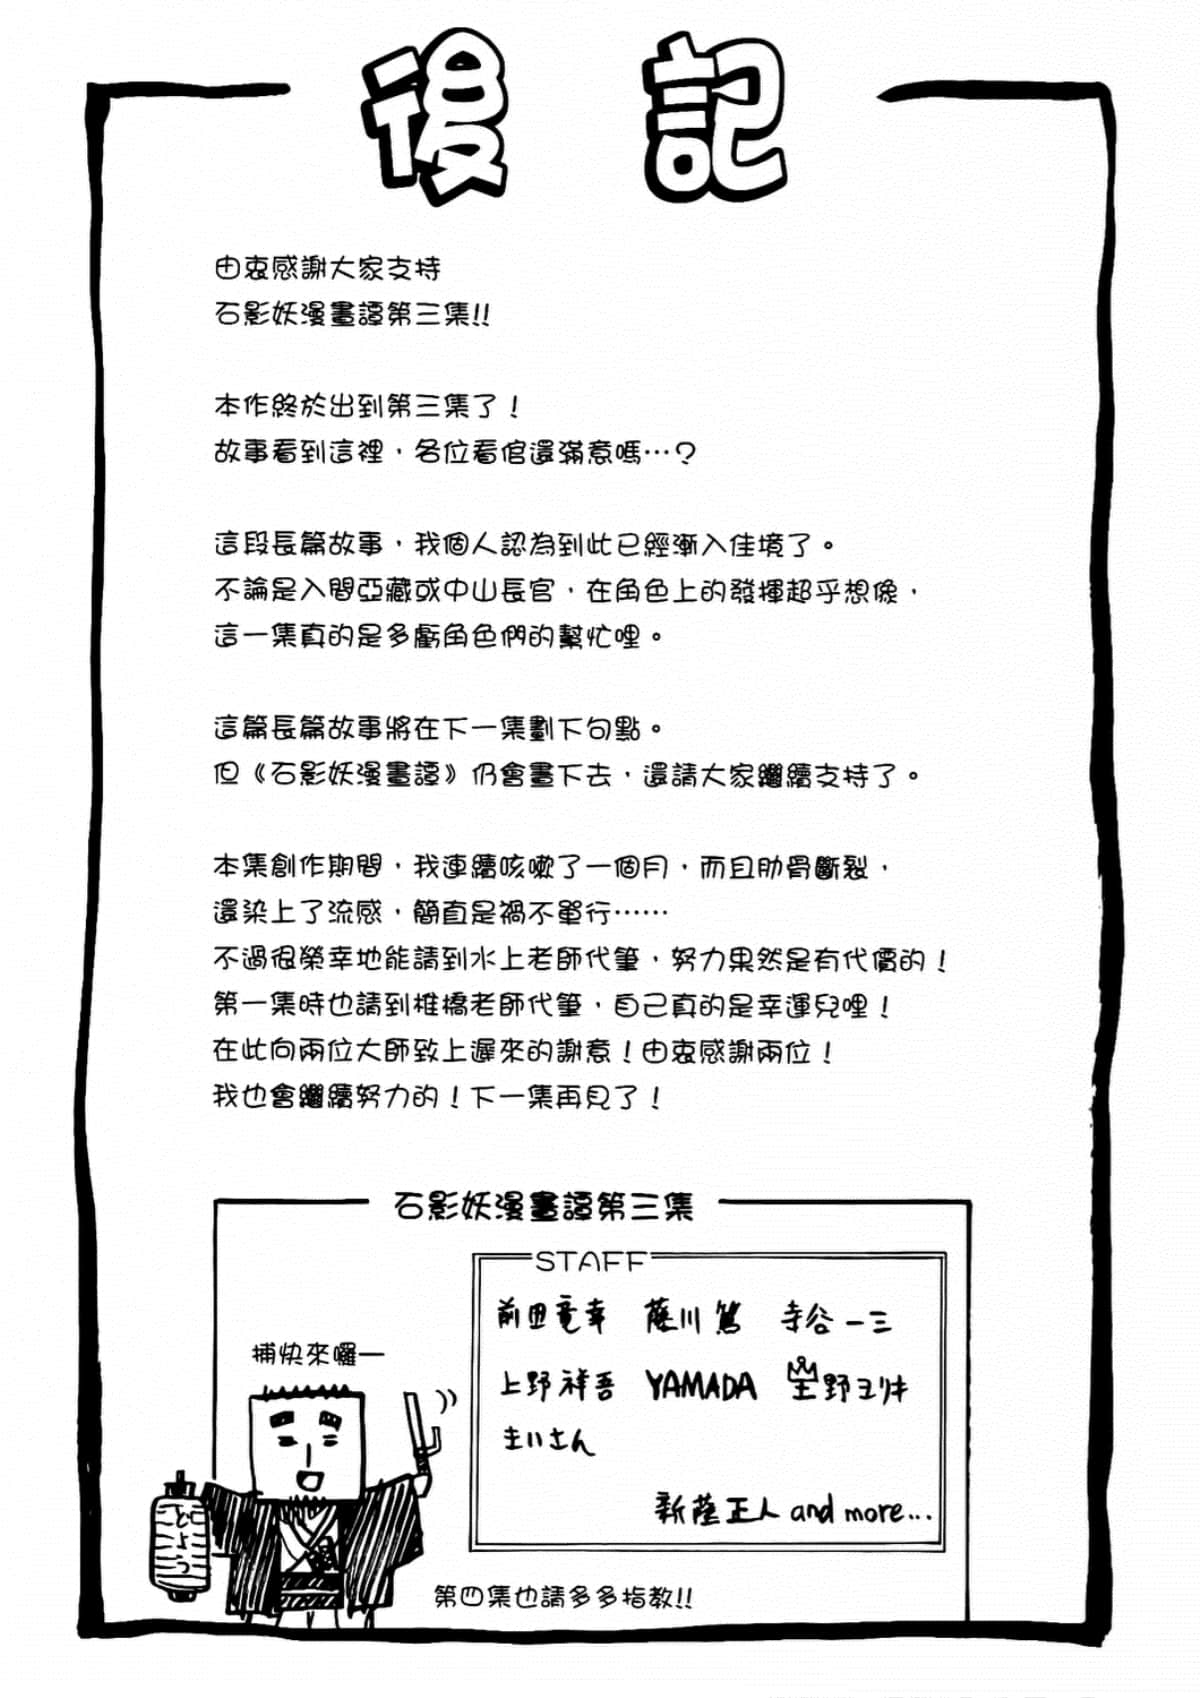 後記
由衷感謝大家支持
石影妖漫畫譚第三集!!
本作終於出到第三集了！
故事看到這裡，各位看倌還滿意嗎…？
這段長篇故事，我個人認為到此已經漸入佳境了。
不論是入間亞藏或中山長官，在角色上的發揮超乎想像，
這一集真的是多虧角色們的幫忙哩。
這篇長篇故事將在下一集劃下句點。
但《石影妖漫畫譚》仍會畫下去，還請大家繼續支持了。
本集創作期間，我連續咳嗽了一個月，而且肋骨斷裂，
還染上了流感，簡直是禍不單行……
不過很榮幸地能請到水上老師代筆，努力果然是有代價的！
第一集時也請到椎橋老師代筆，自己真的是幸運兒哩！
在此向兩位大師致上遲來的謝意！由衷感謝兩位！
我也會繼續努力的！下一集再見了！
石影妖漫畫譚第三集
STAFF
前田竜幸 藤川篤 寺谷一三
上野祥吾 YAMADA 星野ヱリキ
まいさん
新蔭正人 and more...
捕快來囉—
どよう
第四集也請多多指教!!